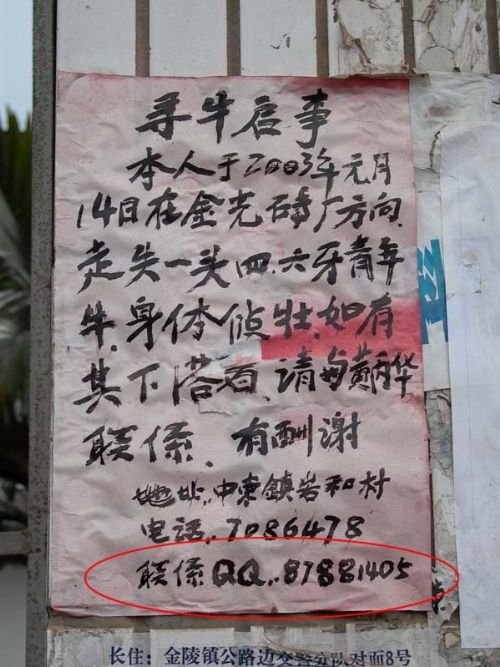 寻牛启事
本人于2003年元月
14日在金光砖厂方向,
走失一头四.六牙青年
牛,身体侦壮,如有
其下落者,请与黄丙华
联係、有酬谢
地址:中东鎮岩和村
电话:7086478
联係QQ:87881405
长住:金陵镇公路边交警分队对面8号